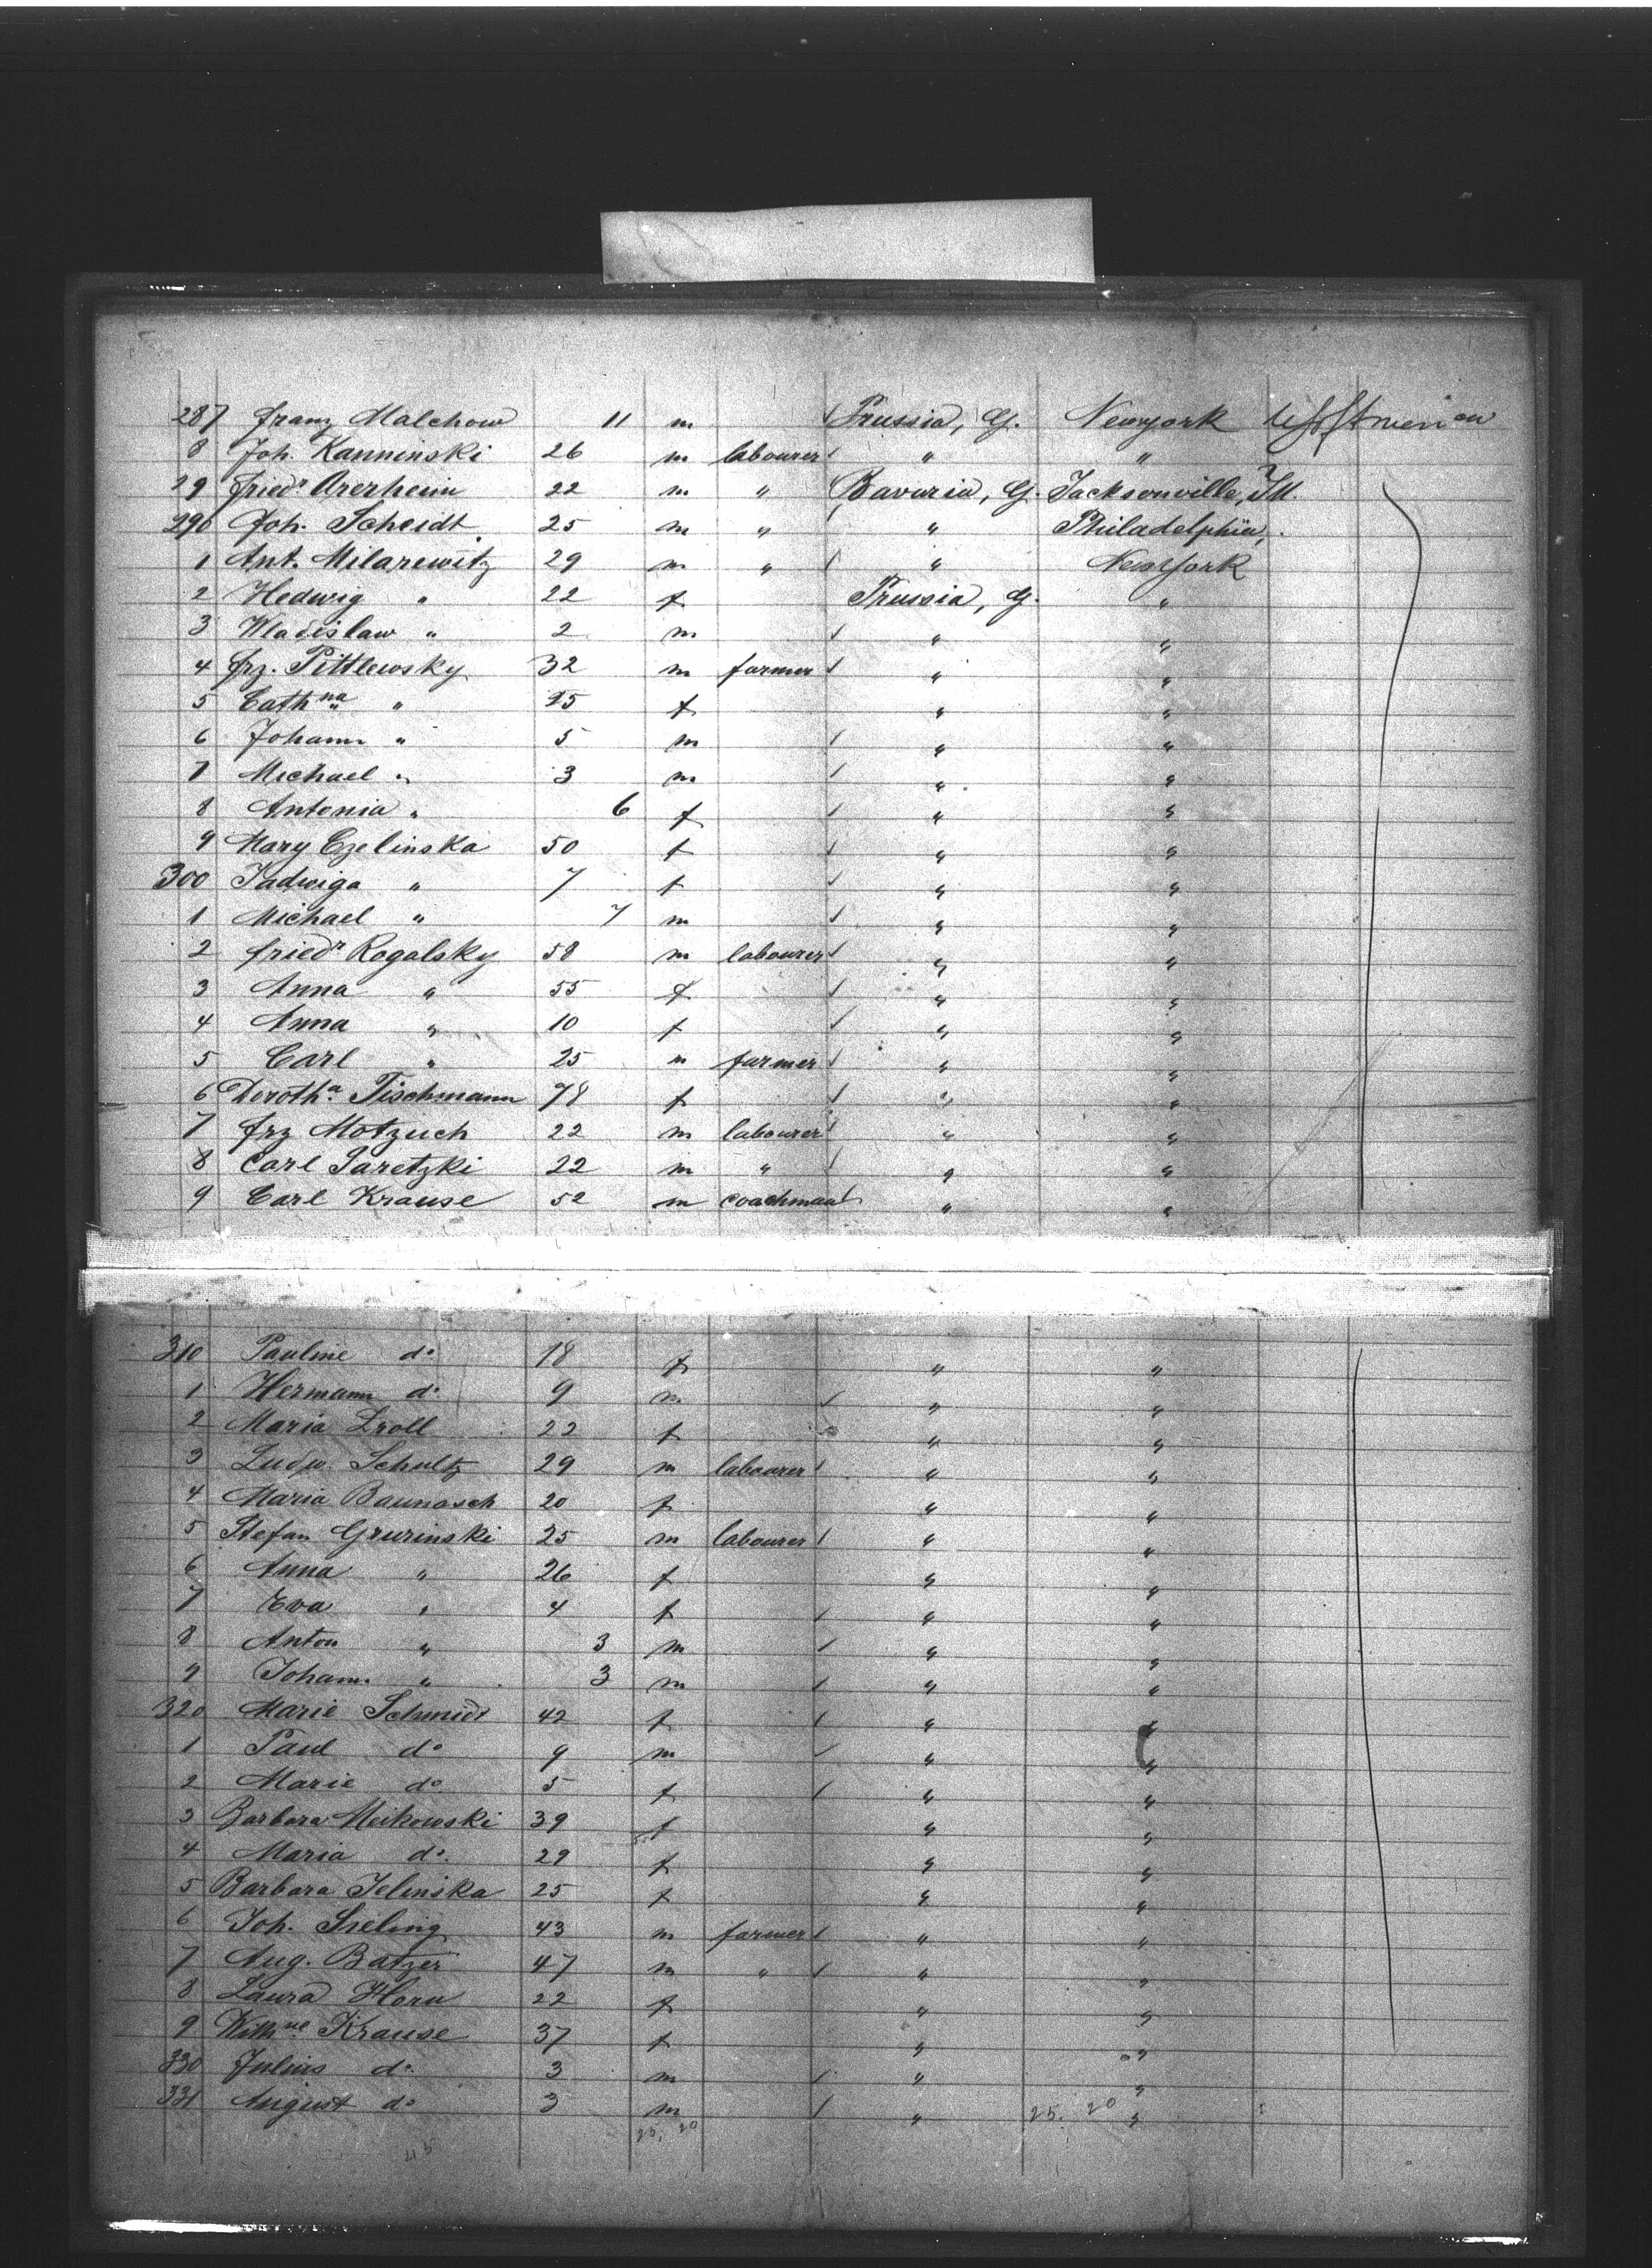 287 Franz Malchow 11 m Prussia, G. Newyork
8 Joh. Kanninski 26 m labourer " "
29 Friedr. Arerheim 22 m " Bavaria, G. Jacksonville, Ill.
290 Joh. Scheidt 25 m " " Philadelphia,
1 Ant. Milarewitz 29 m " " New York
2 Hedwig " 22 f Prussia, G. "
3 Wladislaw " 2 m " "
4 Frz. Pittlewsky 32 m farmer " "
5 Cathna " 25 f " "
6 Johann " 5 m " "
7 Michael " 3 m " "
8 Antonia " 6 f " "
9 Mary Czelinska 50 f " "
300 Jadwiga " 7 f " "
1 Michael " 7 m " "
2 Friedr Rogalsky 58 m labourer " "
3 Anna " 55 f " "
4 Anna " 10 f " "
5 Carl " 25 m farmer " "
6 Dorotha. Tischmann 78 f " "
7 Frz Motzuch 22 m labourer " "
8 Carl Paretzki 22 m " " "
9 Carl Krause 52 m coachman " "
310 Pauline do 18 f " "
1 Hermann do 9 m " "
2 Maria Droll 22 f " "
3 Ludw. Schultz 29 m labourer " "
4 Maria Baunasch 20 f " "
5 Stefan Grurinski 25 m labourer " "
6 Anna " 26 f " "
7 Eva " 4 f " "
8 Anton " 3 m " "
9 Johann " 3 m " "
320 Marie Schmidt 42 f " "
1 Paul do 9 m " "
2 Marie do 5 f " "
3 Barbara Meikowski 39 f " "
4 Maria do. 29 f " "
5 Barbara Jelinska 25 f " "
6 Joh. Sieling 43 m farmer " "
7 Aug. Batzer 47 m " " "
8 Laura Horn 22 f " "
9 Wilhne Krause 37 f " "
330 Julius do 3 m " "
331 August do 3 m " "
25. 20 25. 20
45